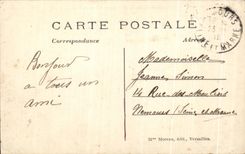 CARTE POSTALE
Correspondance
Bonjour
à tous un
ami
Mademoiselle
Jeanne Simon
14 Rue des Moulins
Nemours (Seine et Marne
ET MARNE
Mme Moreau, édit., Versailles.